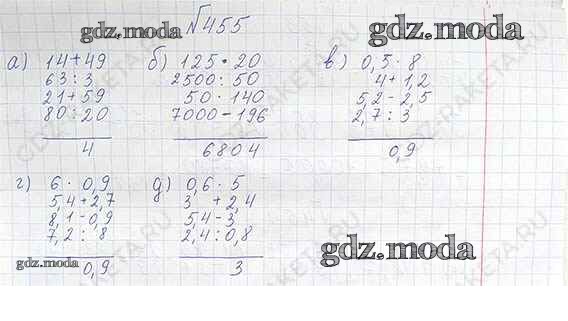 №455
gdz.moda
gdz.moda
а) 14+49
63 : 3
21+59
80 : 20
4
б) 125 · 20
2500 : 50
50 · 140
7000 - 196
6804
в) 0,5 · 8
4 + 1,2
5,2 - 2,5
2,7 : 3
0,9
г) 6 · 0,9
5,4 + 2,7
8,1 - 0,9
7,2 : 8
0,9
д) 0,6 · 5
3 + 2,4
5,4 - 3
2,4 : 0,8
3
gdz.moda
gdz.moda
GDZ-RAKETA.RU